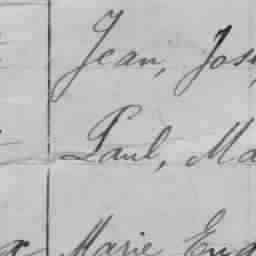 Jean, Jos
Paul, Ma
Marie Eug